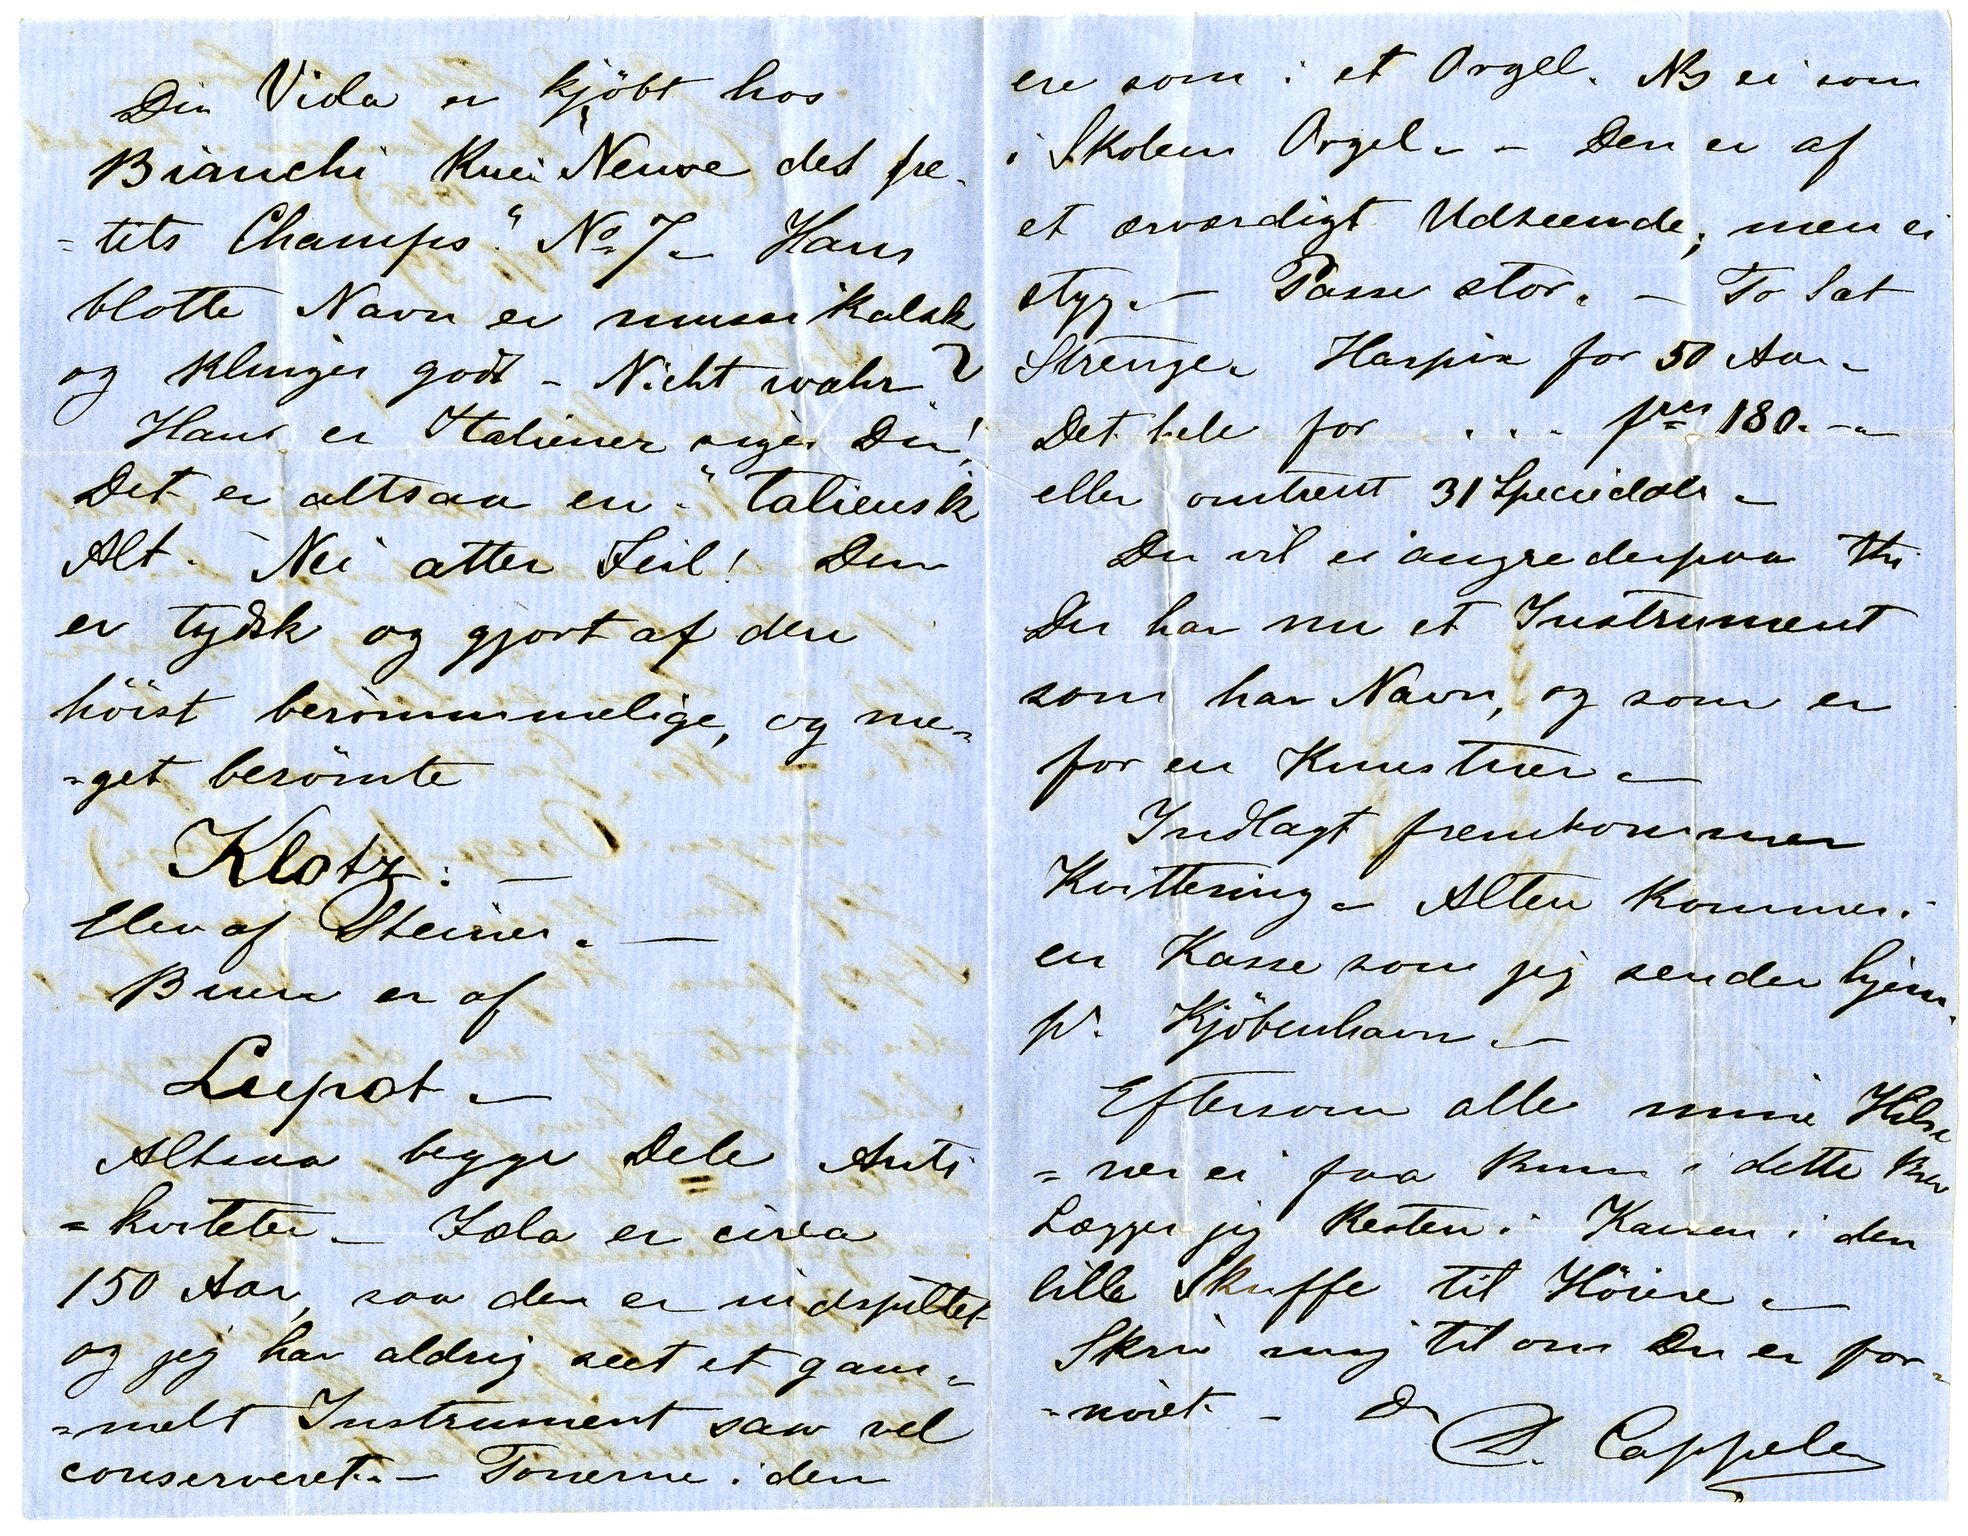 Din Viola er kjöbt hos
Bianchi Rue Neuve des pe-
=tits Champs." No 7 – Hans
blotte Navn er musikalsk
og klinger godt – Nicht wahr?
Hans er Italiener siger Du!
Det er altsaa en "taliensk
Alt. – Nei atter Feil! Den
er tydsk og gjort af den
höist berömmelige, og me-
=get berömte
Klotz: –
Elev af Steiner. –
Buen er af
Lupot –
Altsaa begge Dele Anti
=kviteter – Fela er circa
150 Aar, saa den er indspillet
og jeg har aldrig seet et gam-
=melt Instrument saa vel
conserveret. – Tonerne i den
ere som i et Orgel. NB ei som
i Skolens Orgel. – Den er af
et ærværdigt Udseende; men ei
styg. – Passe stor. – To Sæt
Strenge. Harpix for 50 Aar –
Det hele for . . . frcs 180. –
eller omtrent 31 Speciedalr –
Du vil ei angre derpaa thi
Du har nu et Instrument
som har Navn, og som er
for en Kunstner –
Indlagt fremkommer
Kvittering – Alten kommer i
en Kasse som jeg sender hjem
pr. Kjöbenhavn. –
Eftersom alle mine Hilse
=ner ei faa Rum i dette Brev
Lægger jeg Resten i Kassen i den
lille Skuffe til Höire –
Skriv mig til om Du er for-
=nöiet. – Dr
D. Cappelen